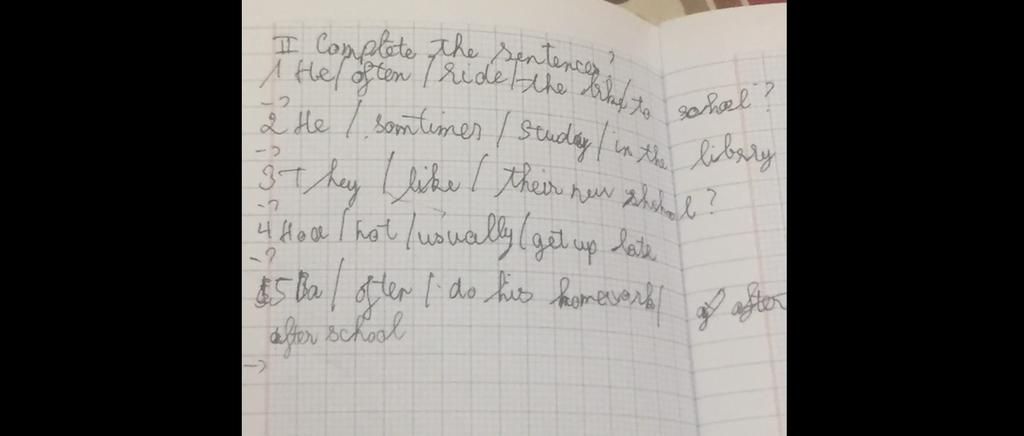 II Complete the sentences?
1 He / often / ride / the bike / to school ?
->
2 He / somtimes / study / in the library
->
3 They / like / their new school ?
->
4 Hoa / not / usually / get up late
->
5 Ba / often / do his homework / after
after school
->